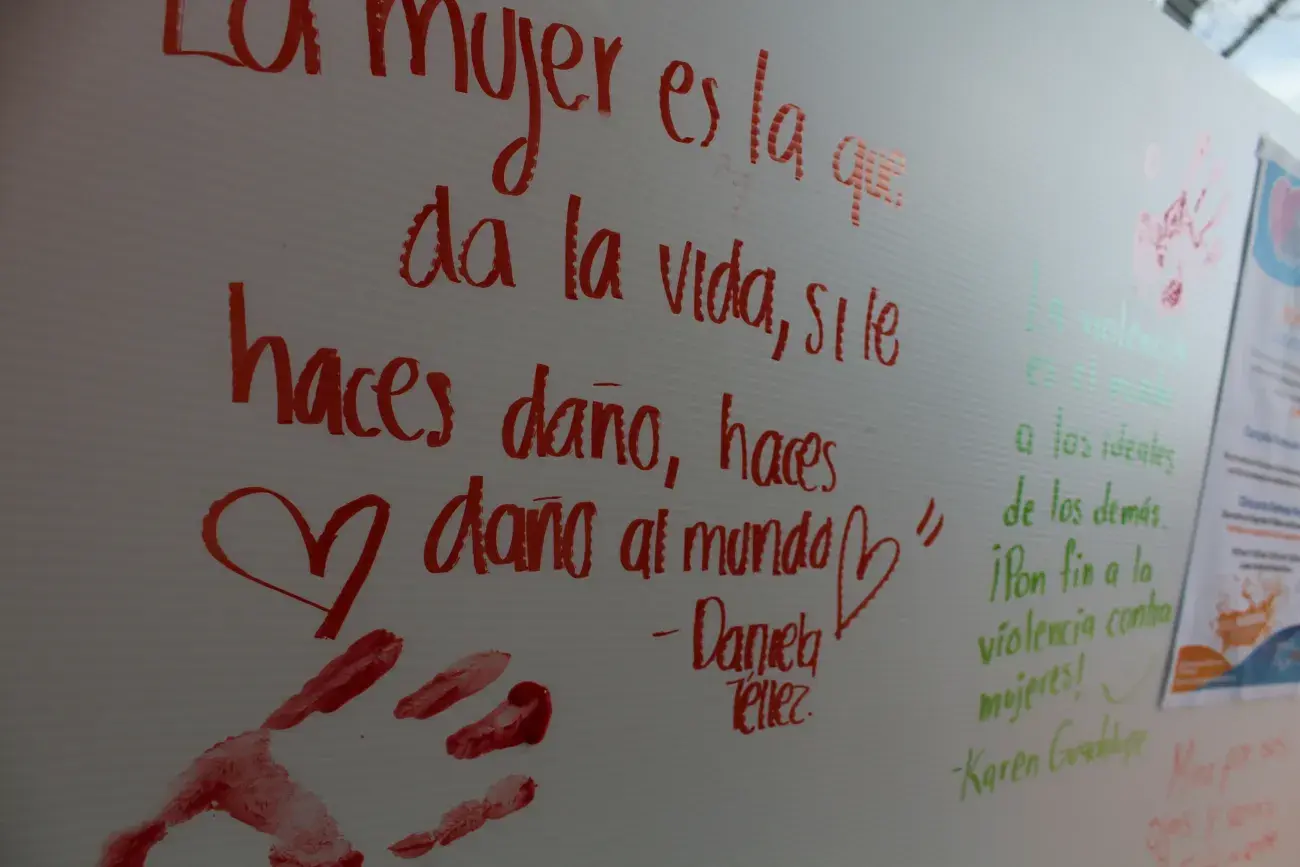 La mujer es la que
da la vida, si le
haces daño, haces
daño al mundo"
- Daniela
Téllez.
La violencia
es el miedo
a los ideales
de los demás.
¡Pon fin a la
violencia contra
mujeres!
-Karen Guadalupe